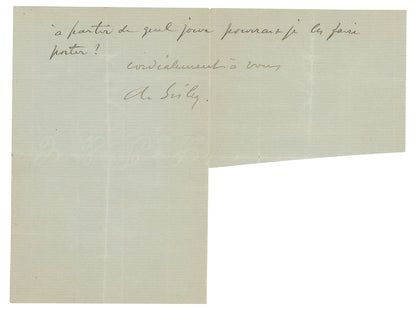 à partir de quel jour pourrais je les faire
porter?
cordialement à vous
A. Sisley.